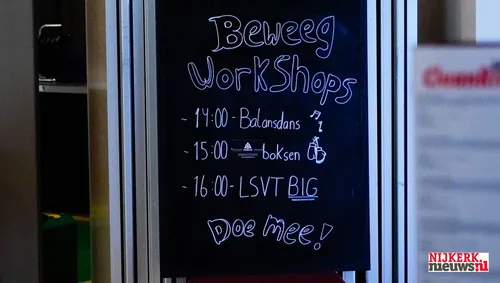 Beweeg
Workshops
- 14:00 - Balansdans
- 15:00 - boksen
- 16:00 - LSVT BIG
Doe mee!
NIJKERK
nieuws.nl